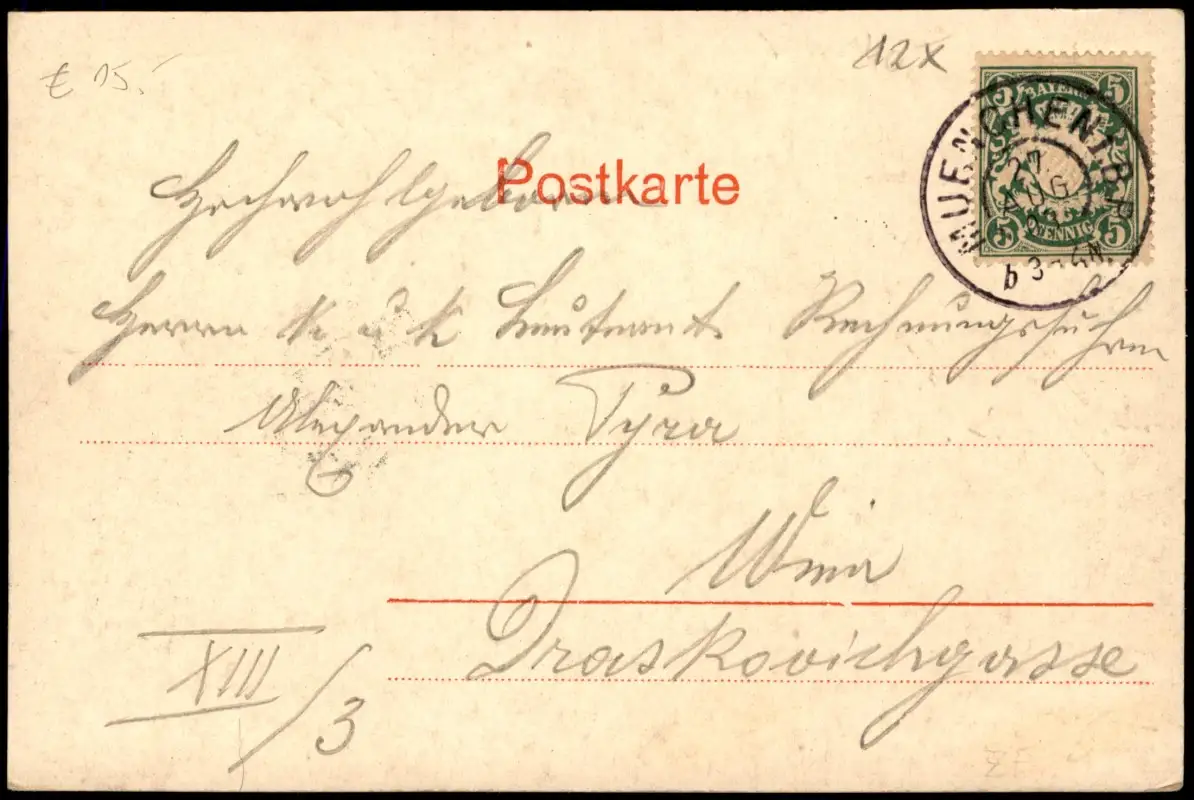 € 15.-
12x
Postkarte
BAYERN
5 5
5 5
PFENNIG
MUENCHEN I. B. P.
27
AUG
3-4N.
Hochwohlgeboren
Herrn K u K Leutnant Rechnungsführer
Alexander Pyra
Wien
Draskovichgasse
XIII/3